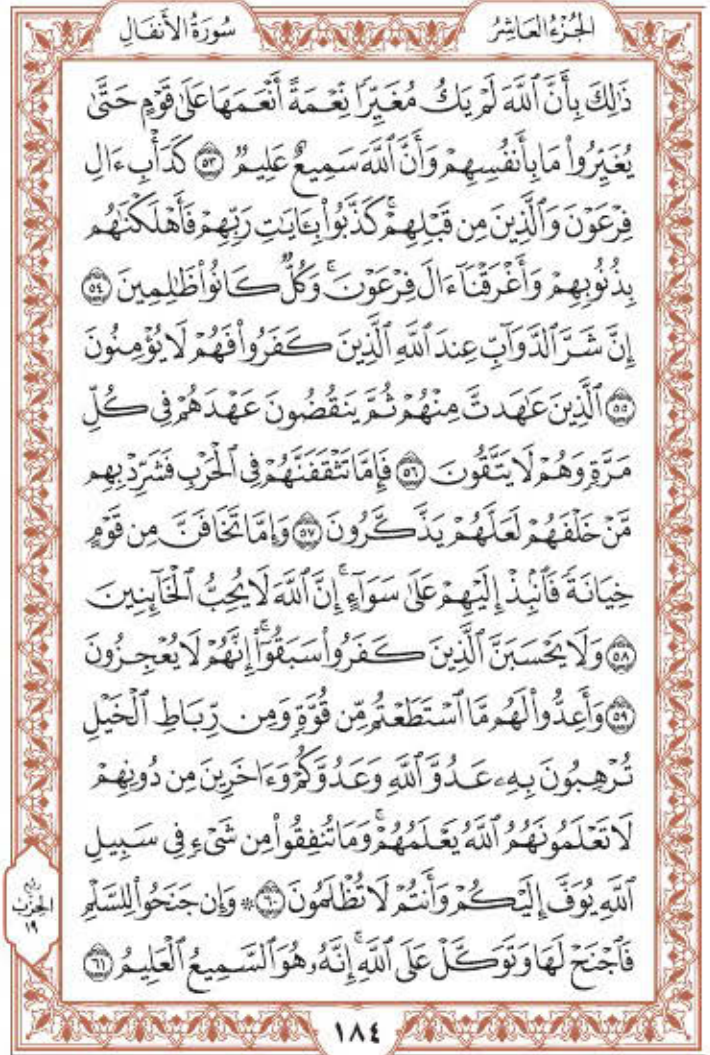 الجُزْءُ العَاشِرُ
سُورَةُ الأَنفَالِ
ذَٰلِكَ بِأَنَّ ٱللَّهَ لَمْ يَكُ مُغَيِّرًا نِّعْمَةً أَنْعَمَهَا عَلَىٰ قَوْمٍ حَتَّىٰ
يُغَيِّرُوا۟ مَا بِأَنفُسِهِمْ وَأَنَّ ٱللَّهَ سَمِيعٌ عَلِيمٌ ۝٥٣ كَدَأْبِ ءَالِ
فِرْعَوْنَ وَٱلَّذِينَ مِن قَبْلِهِمْ ۚ كَذَّبُوا۟ بِـَٔايَـٰتِ رَبِّهِمْ فَأَهْلَكْنَـٰهُم
بِذُنُوبِهِمْ وَأَغْرَقْنَآ ءَالَ فِرْعَوْنَ ۚ وَكُلٌّ كَانُوا۟ ظَـٰلِمِينَ ۝٥٤
إِنَّ شَرَّ ٱلدَّوَآبِّ عِندَ ٱللَّهِ ٱلَّذِينَ كَفَرُوا۟ فَهُمْ لَا يُؤْمِنُونَ
۝٥٥ ٱلَّذِينَ عَـٰهَدتَّ مِنْهُمْ ثُمَّ يَنقُضُونَ عَهْدَهُمْ فِى كُلِّ
مَرَّةٍ وَهُمْ لَا يَتَّقُونَ ۝٥٦ فَإِمَّا تَثْقَفَنَّهُمْ فِى ٱلْحَرْبِ فَشَرِّدْ بِهِم
مَّنْ خَلْفَهُمْ لَعَلَّهُمْ يَذَّكَّرُونَ ۝٥٧ وَإِمَّا تَخَافَنَّ مِن قَوْمٍ
خِيَانَةً فَٱنۢبِذْ إِلَيْهِمْ عَلَىٰ سَوَآءٍ ۚ إِنَّ ٱللَّهَ لَا يُحِبُّ ٱلْخَآئِنِينَ
۝٥٨ وَلَا يَحْسَبَنَّ ٱلَّذِينَ كَفَرُوا۟ سَبَقُوٓا۟ ۚ إِنَّهُمْ لَا يُعْجِزُونَ
۝٥٩ وَأَعِدُّوا۟ لَهُم مَّا ٱسْتَطَعْتُم مِّن قُوَّةٍ وَمِن رِّبَاطِ ٱلْخَيْلِ
تُرْهِبُونَ بِهِۦ عَدُوَّ ٱللَّهِ وَعَدُوَّكُمْ وَءَاخَرِينَ مِن دُونِهِمْ
لَا تَعْلَمُونَهُمُ ٱللَّهُ يَعْلَمُهُمْ ۚ وَمَا تُنفِقُوا۟ مِن شَىْءٍ فِى سَبِيلِ
ٱللَّهِ يُوَفَّ إِلَيْكُمْ وَأَنتُمْ لَا تُظْلَمُونَ ۝٦٠ ۞ وَإِن جَنَحُوا۟ لِلسَّلْمِ
فَٱجْنَحْ لَهَا وَتَوَكَّلْ عَلَى ٱللَّهِ ۚ إِنَّهُۥ هُوَ ٱلسَّمِيعُ ٱلْعَلِيمُ ۝٦١
ربع
الحزب
١٩
١٨٤